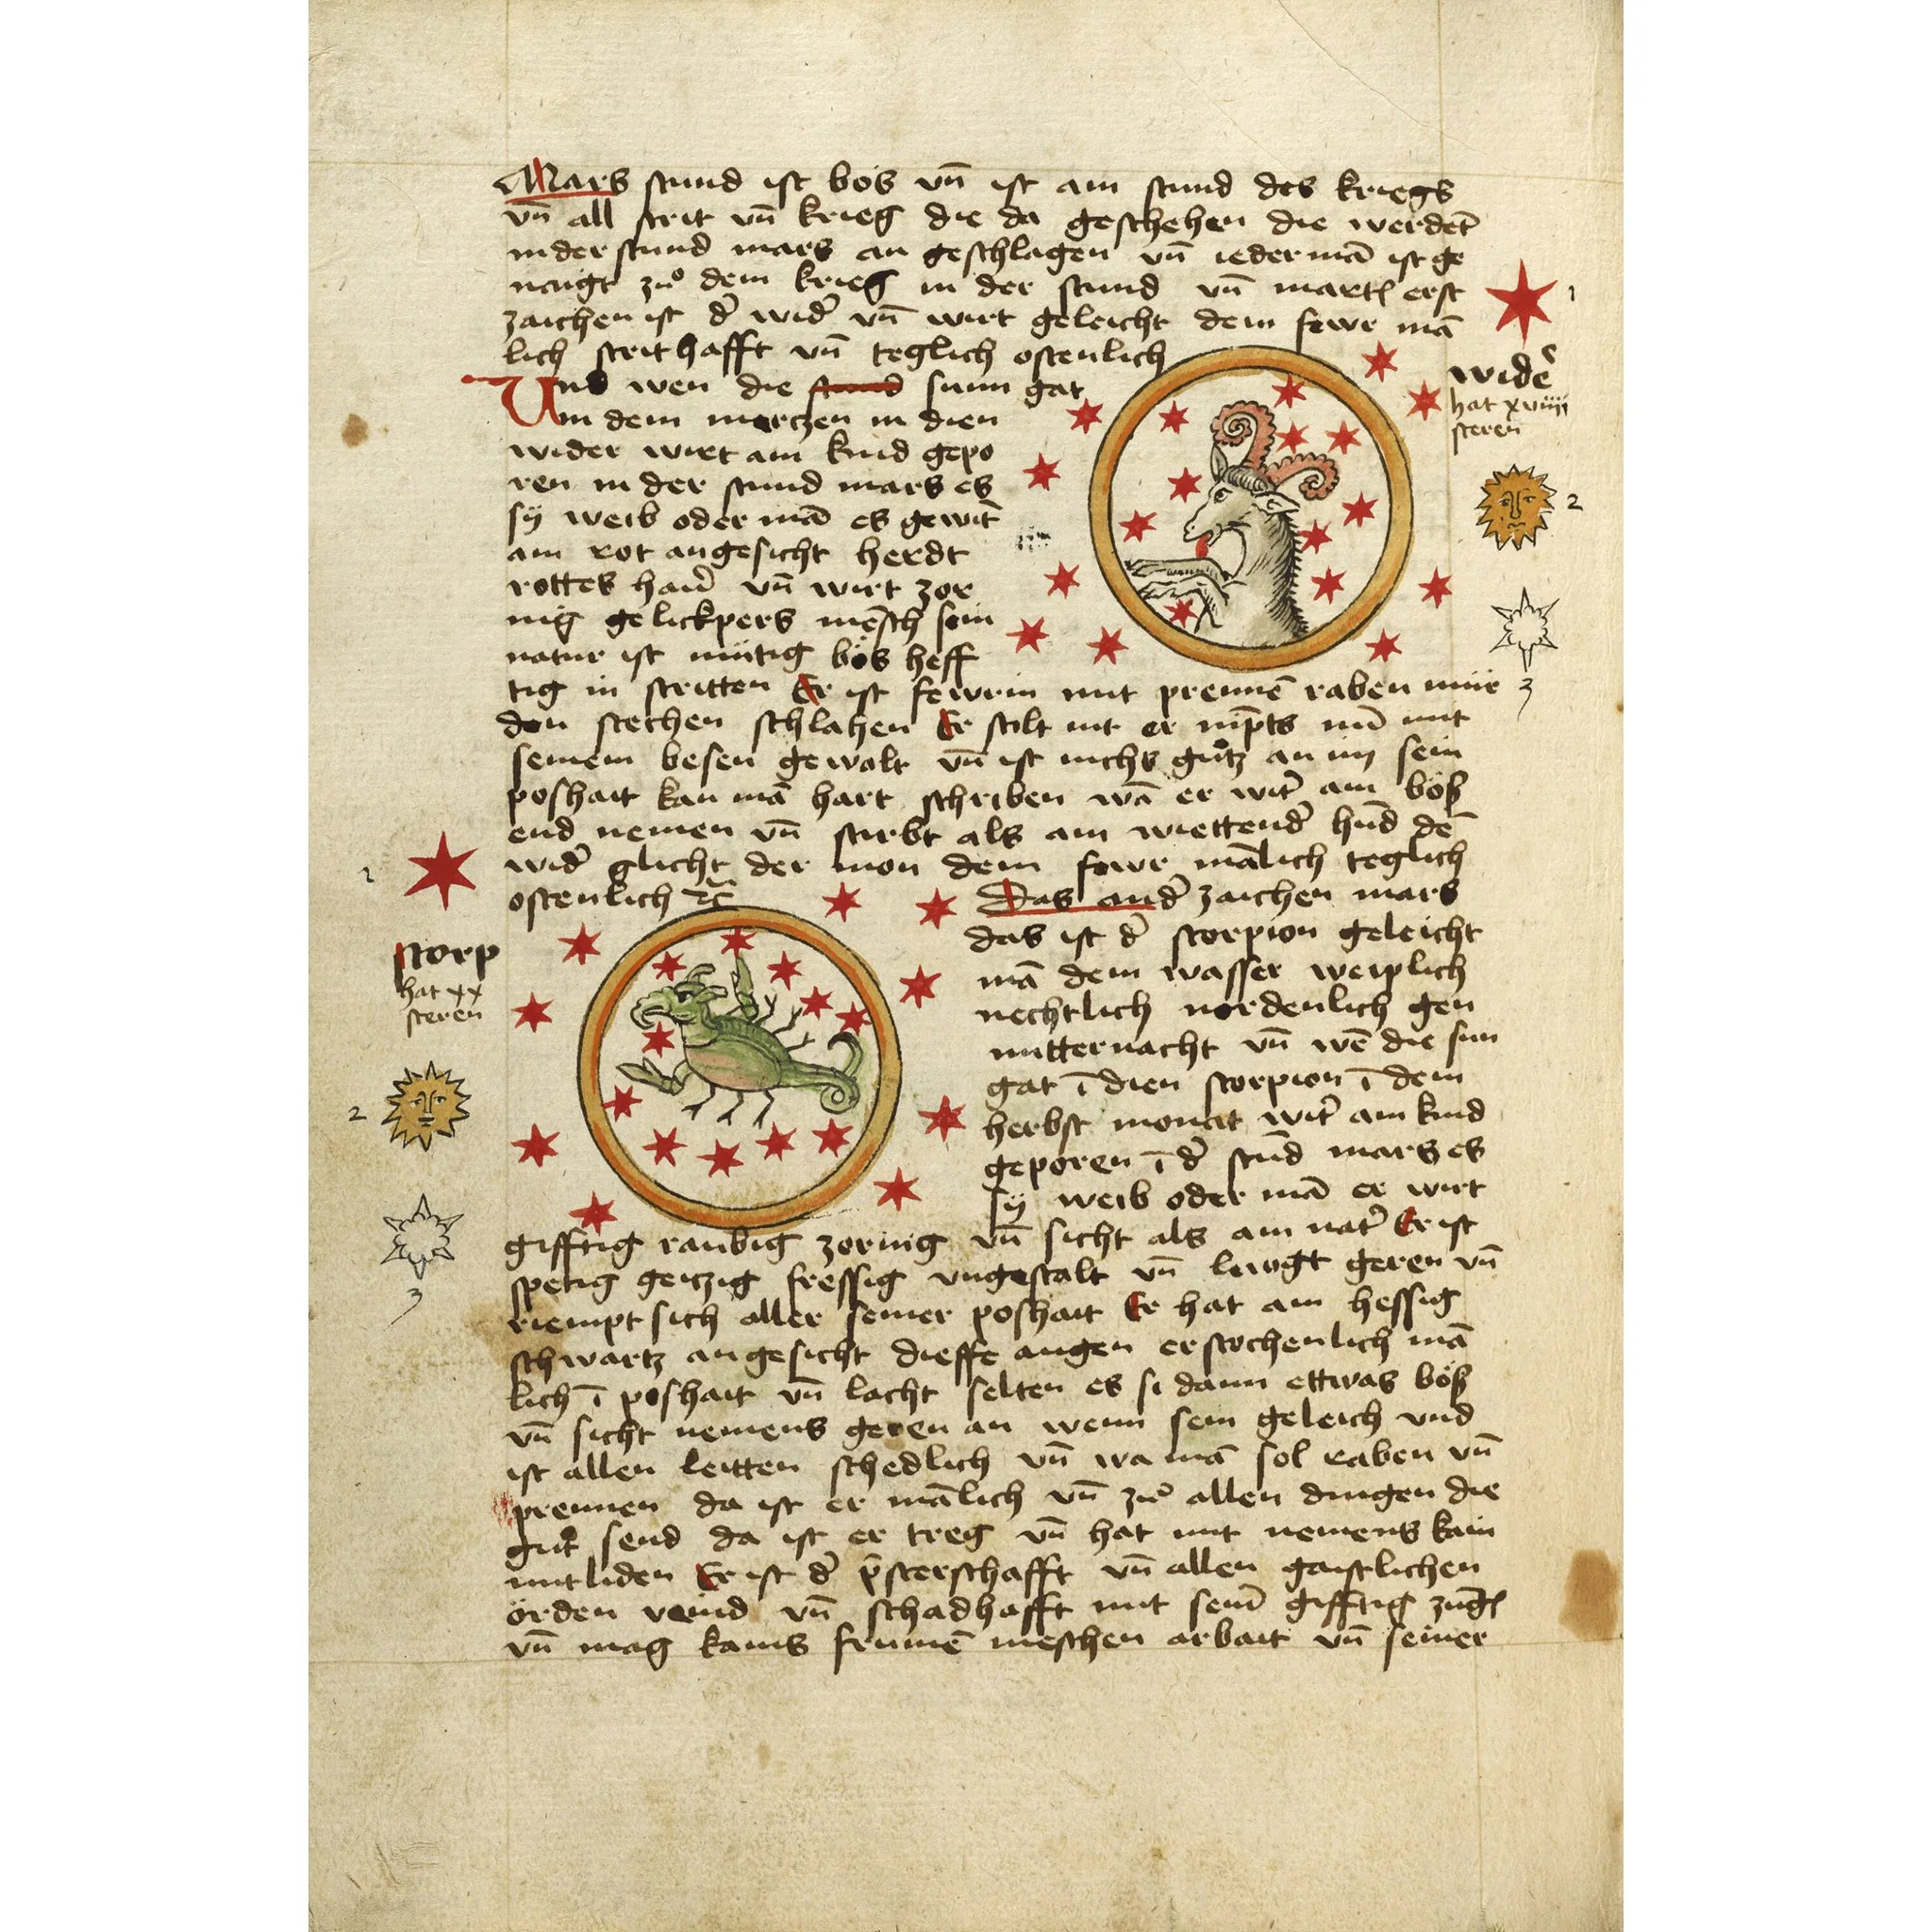 Mars stund ist bös vn̄ ist ain stund des kriegs
vn̄ all strit vn̄ krieg die da geschehen die werdēt
in der stund mars an geschlagen vn̄ iederma͞ ist ge
naigt zuͦ dem krieg in der stund vn̄ mart erst
zaichen ist d͛ wid͛ vn̄ wirt geleicht dem fewr mā
lich strithafft vn̄ teglich ostenlich
Und wen die stund sunn gat
Jn dem mertzen in dien
wider wirt ain kind gepo
ren in der stund mars es
sÿ weib oder mā es gewīt
ain rot angesicht herdt
rottes har vn̄ wirt zor
nig gelickpers mēsch sein
natur ist mütig bös heff
tig in stritten Er ist fewrin mit prennē raben mür
den stechen schlahen Er stilt nit er nīpts nū mit
seinem besen gewalt vn̄ ist nichs guͦtz an im sein
poshait kan mā hart schriben wā er wirt ain böß
end nemen vn̄ stirbt als ain wiettend͛ hūd dē
wid͛ glicht der mon dem fewr mālich teglich
ostenlich ⁊c̄
Das and͛ zaichen mars
das ist d͛ scorpion geleicht
mā dem wasser weiplich
nechtlich nordenlich gen
mitternacht vn̄ wē die sun
gat ī dien scorpion ī dem
herbst monat wirt ain kind
geporen ī d͛ stūd mars es
sÿ weib oder mā er wirt
gifftig raubig zornig vn̄ sicht als ain nat͛ Er ist
spetig geitzig fressig vngestalt vn̄ luogt geren vn̄
riempt sich aller seiner poshait Er hat ain hessig
schwartz angesicht dieffe augen erstochenlich mā
lich ī poshait vn̄ lacht selten es si dann ettwas böß
vn̄ sicht nemens geren an wenn sein geleich vnd
ist allen leitten schedlich vn̄ wa mā sol raben vn̄
prennen da ist er mālich vn̄ zuͦ allen dingen die
guͦt send da ist er treg vn̄ hat mit nemens kain
mitliden Er ist d͛ p̄sterschafft vn̄ allen gaistlichen
örden veind vn̄ schadhafft mit seim̄ gifftig zūg
vn̄ mag kains frumē meschen arbait vn̄ seiner
1
wid͛
hat xviiij
steren
2
3
1
scorp
hat xx
steren
2
3